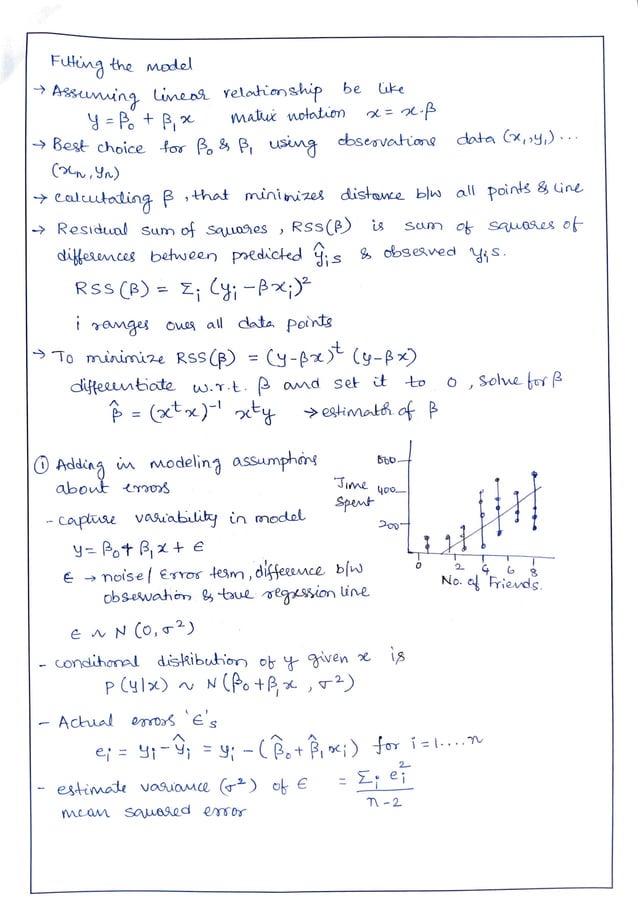 Fitting the model
→ Assuming linear relationship be like
y = β₀ + β₁x matrix notation x = x.β
→ Best choice for β₀ & β₁ using observations data (x₁,y₁)...
(xₙ, yₙ)
→ calculating β, that minimizes distance b/w all points & line
→ Residual sum of squares, RSS(β) is sum of squares of
differences between predicted ŷᵢs & observed yᵢs.
RSS(β) = Σᵢ (yᵢ - βxᵢ)²
i ranges over all data points
→ To minimize RSS(β) = (y-βx)ᵗ (y-βx)
differentiate w.r.t. β and set it to 0, solve for β
β̂ = (xᵗx)⁻¹ xᵗy → estimator of β
① Adding in modeling assumptions
about errors
- capture variability in model
y = β₀ + β₁x + ϵ
ϵ → noise/ Error term, difference b/w
observation & true regression line
ϵ ~ N(0, σ²)
Time
Spent
400
200
0 2 4 6 8
No. of Friends.
- conditional distribution of y given x is
P(y|x) ~ N(β₀+β₁x, σ²)
- Actual errors 'ϵ's
eᵢ = yᵢ - ŷᵢ = yᵢ - (β̂₀ + β̂₁xᵢ) for i=1....n
- estimate variance (σ²) of ϵ = Σᵢ eᵢ² / n-2
mean squared error